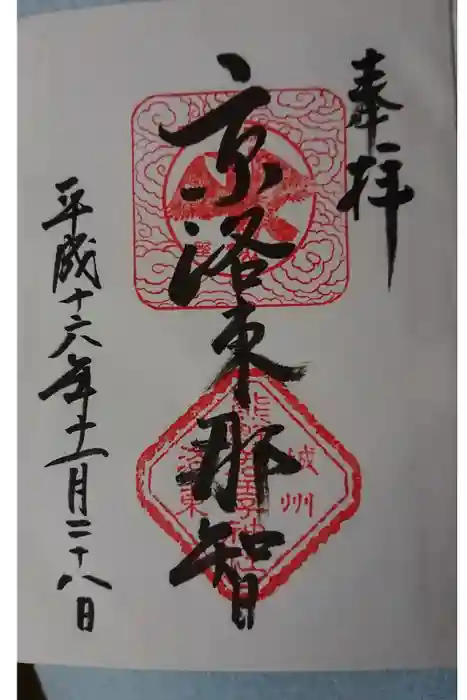 奉拝
京洛東那智
城州
洛東
平成十六年十一月二十八日